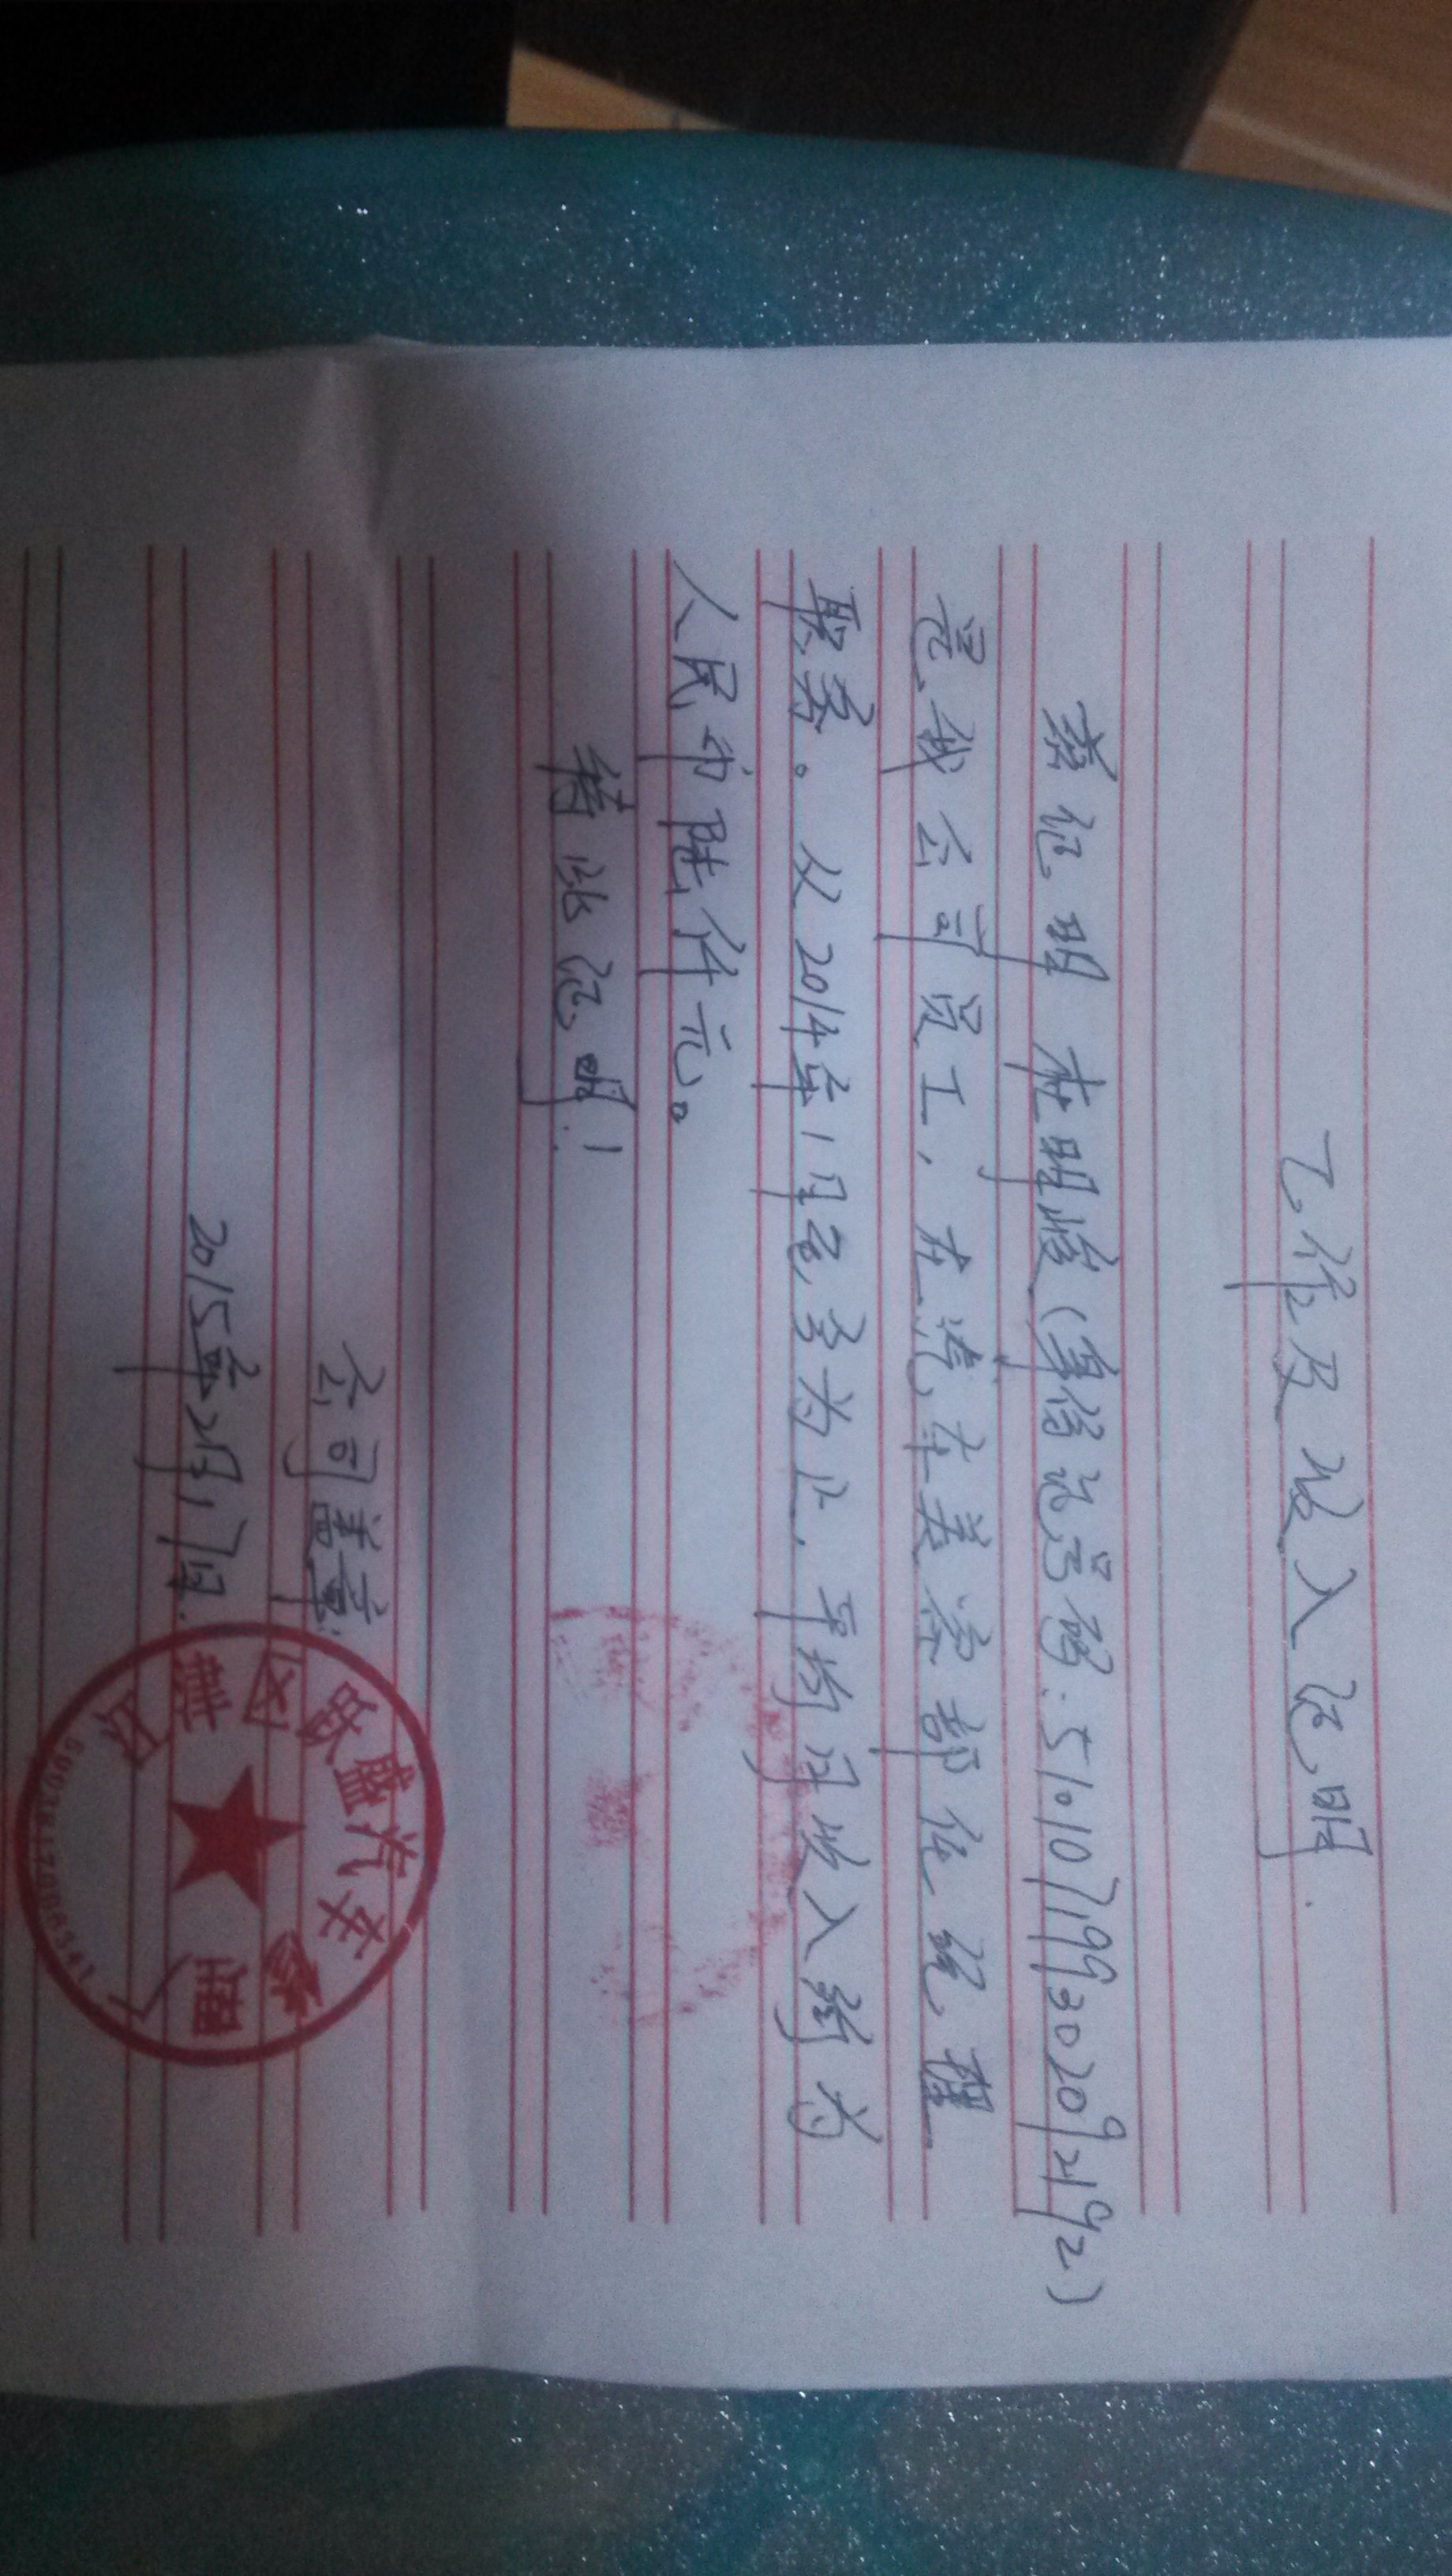 工作及收入证明.
兹证明 杜明俊(身份证号码:510107199302092192)
是我公司员工,在汽车美容部任经理
职务。从2014年1月起至今为止,平均月收入约为
人民币陆仟元。
特此证明!
公司盖章:
2015年2月17日.
盛汽车修理厂